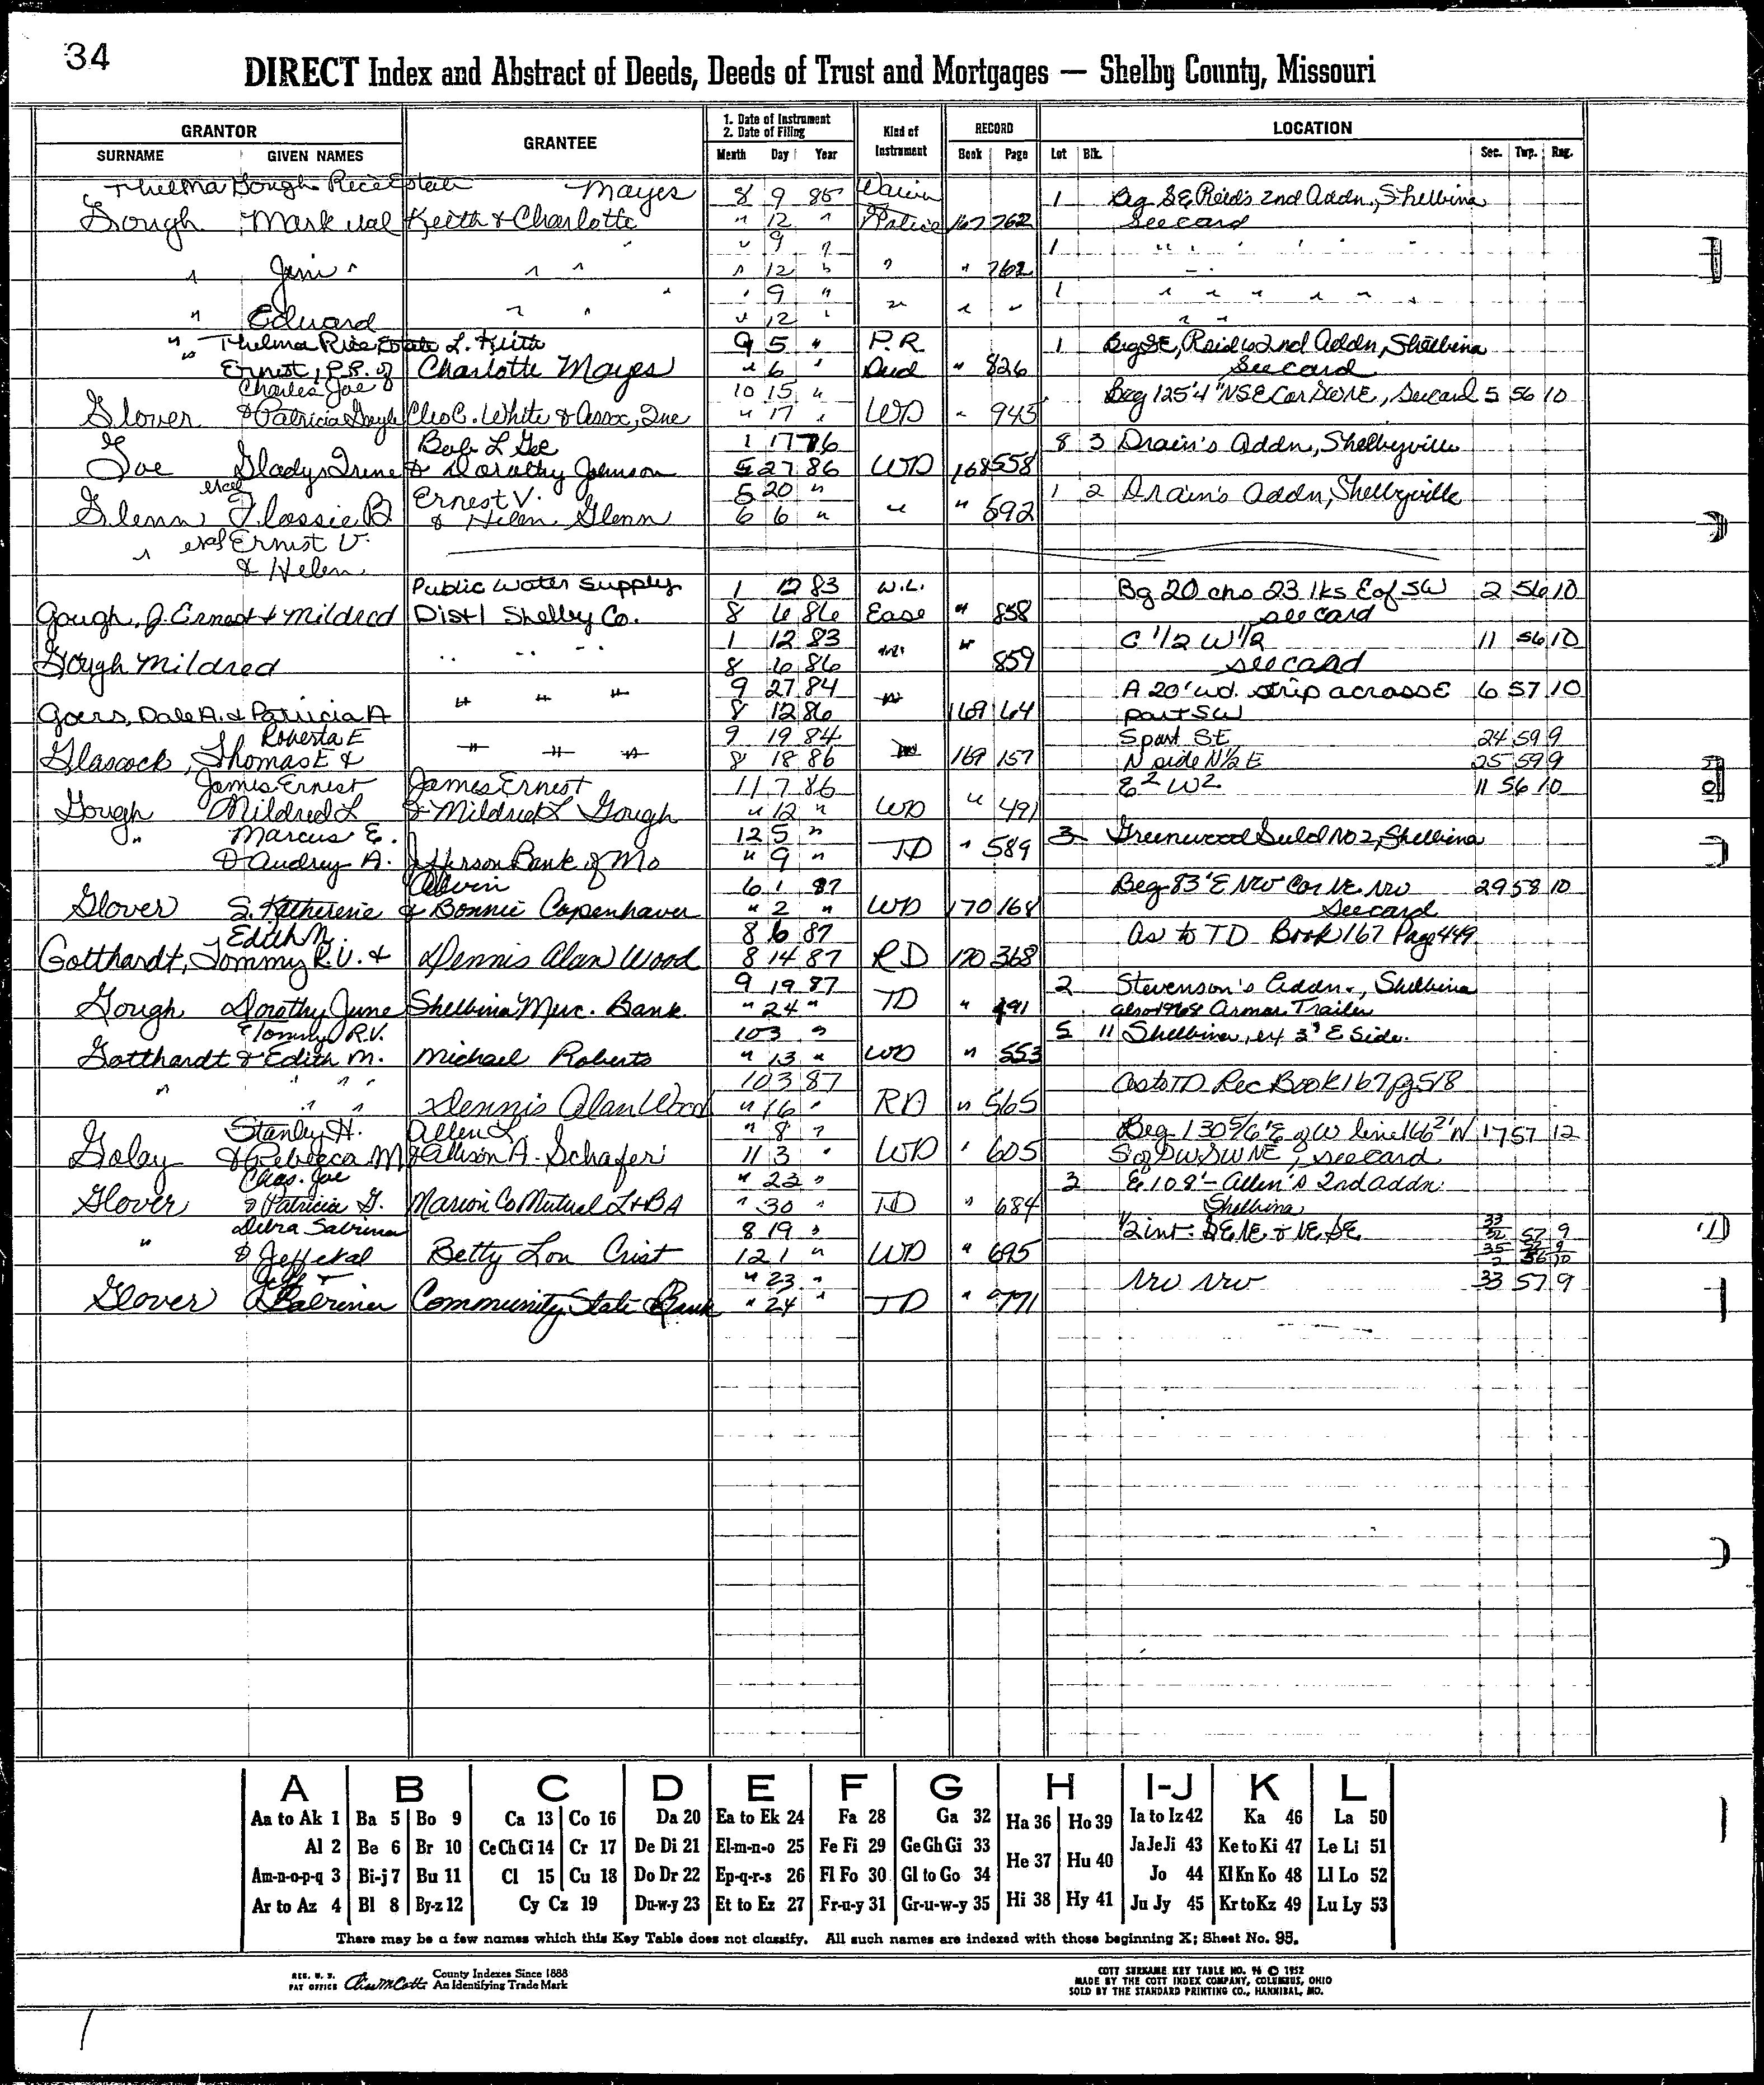 34
DIRECT Index and Abstract of Deeds, Deeds of Trust and Mortgages — Shelby County, Missouri
GRANTOR GRANTEE 1. Date of Instrument 2. Date of Filing Kind of Instrument RECORD LOCATION
SURNAME GIVEN NAMES Month Day Year Book Page Lot Blk. Sec. Twp. Rng.
Thelma Gough Rice Estate Mayes 8 9 85 1 Beg SE Reid's 2nd Addn, Shelbina
Gough Mark Val Keith & Charlotte " 12 " 167 762 See card
" 9 " 1 " " " " " "
" Jim " " " " 12 " " " 762
" 9 " 1 " " " " " "
" Edward " " " 12 " " " " " "
" Thelma Rice Estate L. Keith 9 5 " P.R. 1 Beg SE, Reid's 2nd Addn, Shelbina
" Ernest, P.R. of Charlotte Mayes " 6 " Deed " 826 See card
Charles Joe 10 15 " Beg 125'4" N SE Cor SW NE, See card 5 56 10
Glover & Patricia Gayle Cleo C. White & Assoc, Inc " 17 " WD " 945
Bob L Gee 1 17 76 8 3 Drain's Addn, Shelbyville
Goe Gladys Irene & Dorothy Johnson 5 27 86 WD 168 558
Ernest V. 5 20 " 1 2 Drain's Addn, Shelbyville
Glenn Flossie B & Helen Glenn 6 6 " " " 592
" Ernest V.
& Helen
Public Water Supply 1 12 83 W.L. Bg 20 chs 23 lks E of SW 2 56 10
Gough, J. Ernest & Mildred Dist 1 Shelby Co. 8 6 86 Ease " 858 see card
1 12 83 C 1/2 W 1/2 11 56 10
Gough Mildred " " " " 8 6 86 " " 859 see card
9 27 84 A 20' wd. strip across E 6 57 10
Goers, Dale A. & Patricia A " " " 8 12 86 " 169 64 part SW
Roberta E 9 19 84 S part SE 24 59 9
Glascock, Thomas E & " " " 8 18 86 169 157 N side N 1/2 E 25 59 9
James Ernest James Ernest 11 7 86 E2 W2 11 56 10
Gough Mildred L & Mildred L Gough " 12 " WD " 491
" Marcus E. 12 5 " 3 Greenwood Subd No 2, Shelbina
& Audrey A. Jefferson Bank of Mo " 9 " TD " 589
Alvin 6 1 87 Beg 83' E NW Cor NE NW 29 58 10
Glover S. Katherine & Bonnie Copenhaver " 2 " WD 170 168 See card
Edith M. 8 6 87 As to TD Book 167 Page 449
Gotthardt, Tommy R.V. & Dennis Alan Wood 8 14 87 RD 170 368
9 19 87 2 Stevenson's Addn., Shelbina
Gough Dorothy June Shelbina Merc. Bank " 24 " TD " 491 also 1968 Armor Trailer
Tommy R.V. 10 3 " 5 11 Shelbina, ex 3' E Side.
Gotthardt & Edith M. Michael Roberts " 13 " WD " 553
" " " " 10 3 87 As to TD Rec Book 167 Pg 518
" " " Dennis Alan Wood " 16 " RD " 565
Stanley H. Allen L " 8 " Beg 130 5/6' E of W line 166 2' N 17 57 12
Golay & Rebecca M & Allison A. Schafer 11 3 " WD " 605 S of SW SW NE, see card
Chas. Joe " 23 " 3 E 108' - Allen's 2nd addn.
Glover & Patricia G. Marion Co Mutual L & BA " 30 " TD " 684 Shelbina
Debra Sabrina 8 19 " 1/2 int: SE NE & NE SE 33 57 9
" & Jeff etal Betty Lou Crist 12 1 " WD " 695
Jeff & " 23 " NW NW 33 57 9
Glover Sabrina Community State Bank " 24 " TD " 771
A B C D E F G H I-J K L
Aa to Ak 1 Ba 5 Bo 9 Ca 13 Co 16 Da 20 Ea to Ek 24 Fa 28 Ga 32 Ha 36 Ho 39 Ia to Iz 42 Ka 46 La 50
Al 2 Be 6 Br 10 Ce Ch Ci 14 Cr 17 De Di 21 El-m-n-o 25 Fe Fi 29 Ge Gh Gi 33 He 37 Hu 40 Ja Je Ji 43 Ke to Ki 47 Le Li 51
Am-n-o-p-q 3 Bi-j 7 Bu 11 Cl 15 Cu 18 Do Dr 22 Ep-q-r-s 26 Fl Fo 30 Gl to Go 34 Jo 44 Kl Kn Ko 48 Ll Lo 52
Ar to Az 4 Bl 8 By-z 12 Cy Cz 19 Du-w-y 23 Et to Ez 27 Fr-u-y 31 Gr-u-w-y 35 Hi 38 Hy 41 Ju Jy 45 Kr to Kz 49 Lu Ly 53
There may be a few names which this Key Table does not classify. All such names are indexed with those beginning X; Sheet No. 95.
REG. U. S. PAT OFFICE County Indexes Since 1888 An Identifying Trade Mark
COTT SURNAME KEY TABLE NO. 96 © 1952
MADE BY THE COTT INDEX COMPANY, COLUMBUS, OHIO
SOLD BY THE STANDARD PRINTING CO., HANNIBAL, MO.